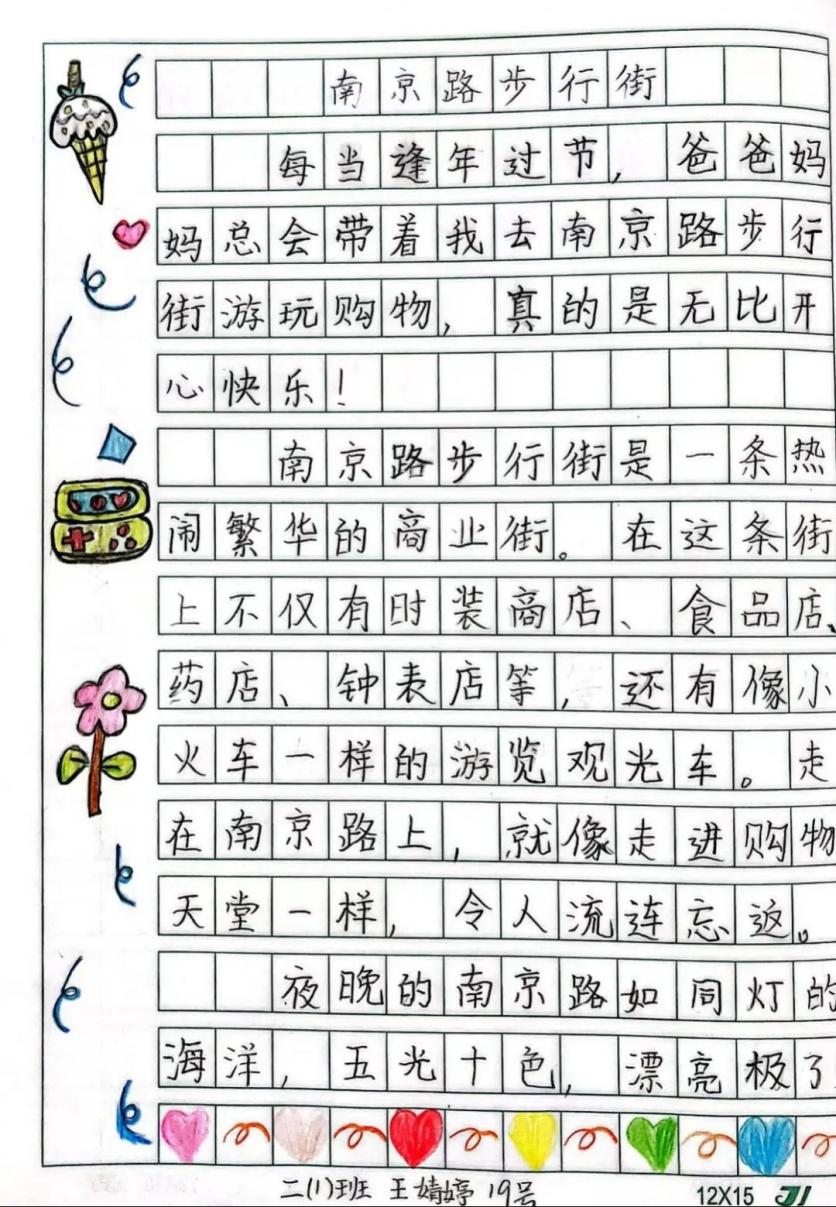 南京路步行街
每当逢年过节，爸爸妈
妈总会带着我去南京路步行
街游玩购物，真的是无比开
心快乐！
南京路步行街是一条热
闹繁华的商业街。在这条街
上不仅有时装商店、食品店、
药店、钟表店等，还有像小
火车一样的游览观光车。走
在南京路上，就像走进购物
天堂一样，令人流连忘返。
夜晚的南京路如同灯的
海洋，五光十色，漂亮极了
二(1)班 王婧婷 19号
12X15